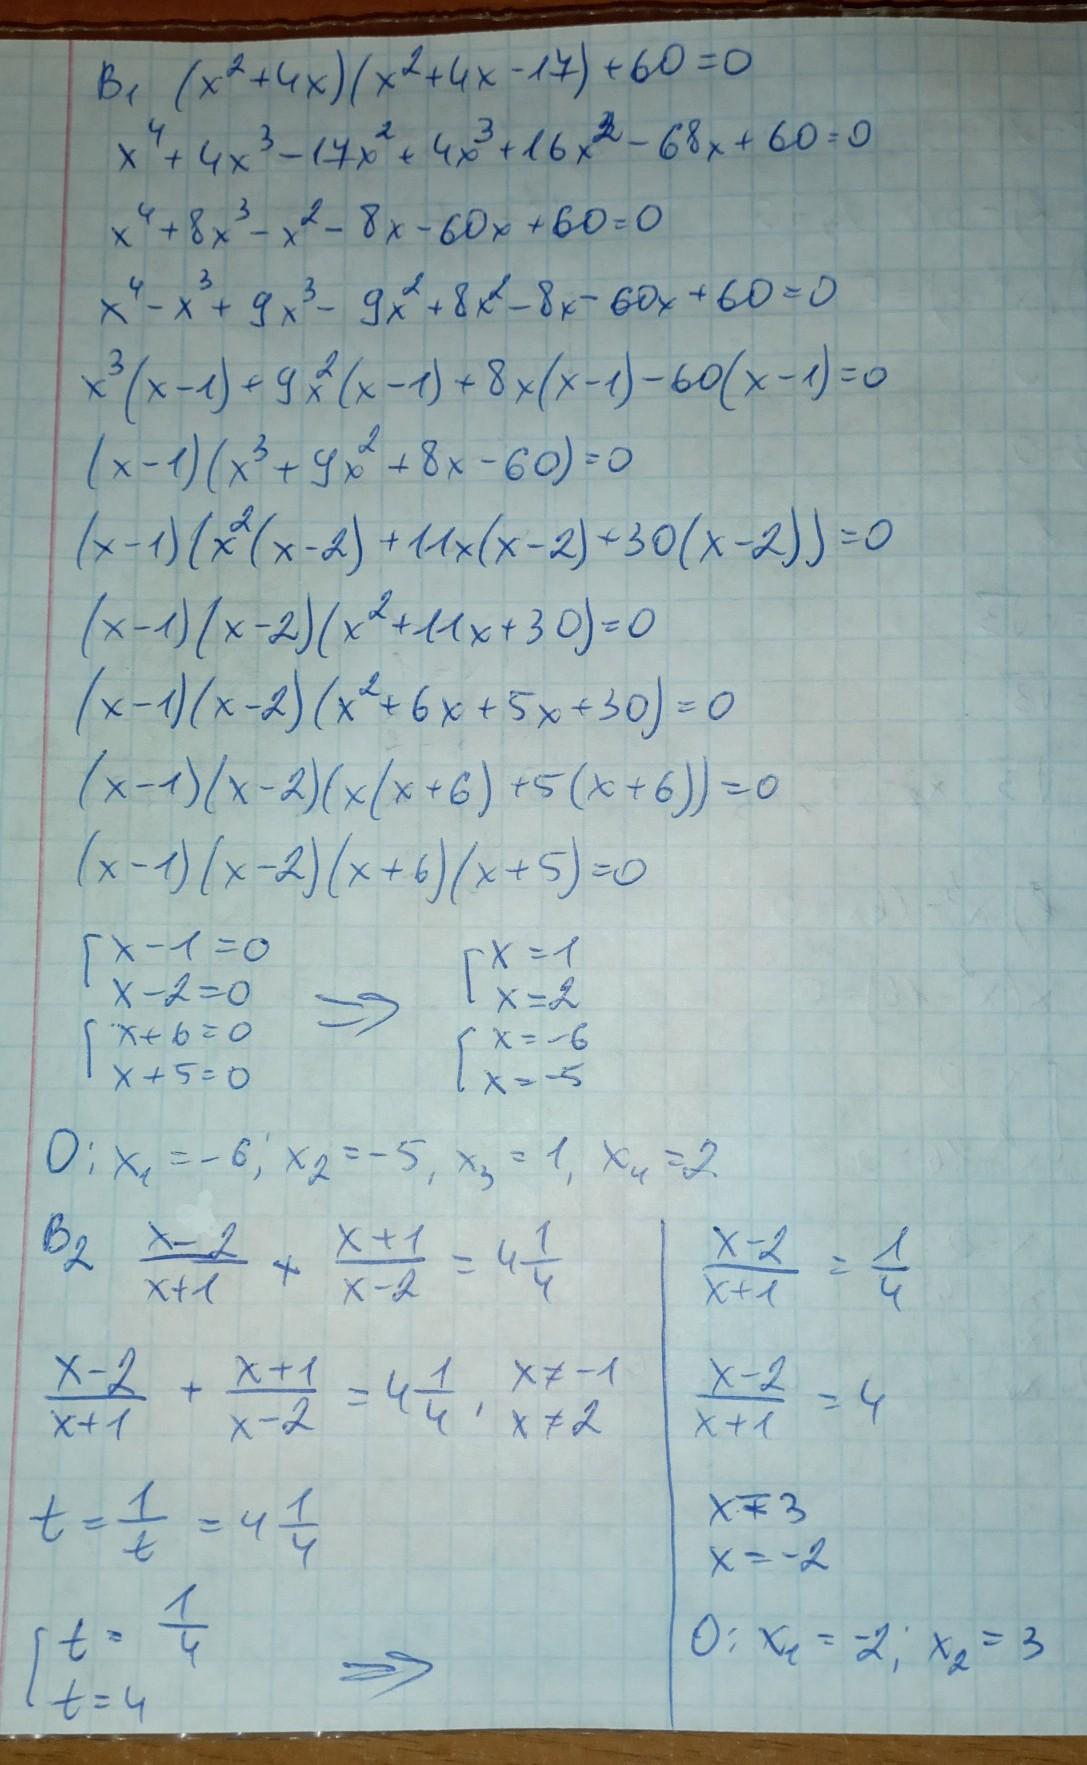 В₁ (x²+4x)(x²+4x-17)+60=0
x⁴+4x³-17x²+4x³+16x²-68x+60=0
x⁴+8x³-x²-8x-60x+60=0
x⁴-x³+9x³-9x²+8x²-8x-60x+60=0
x³(x-1)+9x²(x-1)+8x(x-1)-60(x-1)=0
(x-1)(x³+9x²+8x-60)=0
(x-1)(x²(x-2)+11x(x-2)+30(x-2))=0
(x-1)(x-2)(x²+11x+30)=0
(x-1)(x-2)(x²+6x+5x+30)=0
(x-1)(x-2)(x(x+6)+5(x+6))=0
(x-1)(x-2)(x+6)(x+5)=0
[x-1=0 [x=1
x-2=0 ⇒ x=2
[x+6=0 [x=-6
x+5=0 x=-5
О: x₁=-6; x₂=-5, x₃=1, x₄=2
В₂ (x-2)/(x+1) + (x+1)/(x-2) = 4 1/4
(x-2)/(x+1) + (x+1)/(x-2) = 4 1/4, x≠-1
x≠2
t = 1/t = 4 1/4
[t = 1/4
t=4 ⇒
(x-2)/(x+1) = 1/4
(x-2)/(x+1) = 4
x=3
x=-2
О: x₁=-2; x₂=3